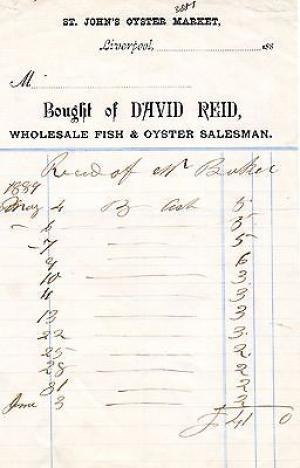 ST. JOHN'S OYSTER MARKET,
Liverpool, 188
M
Bought of DAVID REID,
WHOLESALE FISH & OYSTER SALESMAN.
Recd of Mr Baker
1889
May 4 By Cash 5
" 6 3
" 7 5
9 6
10 3
11 3
13 3
22 3
25 2
28 2
31 2
June 3 2
£ 41 0